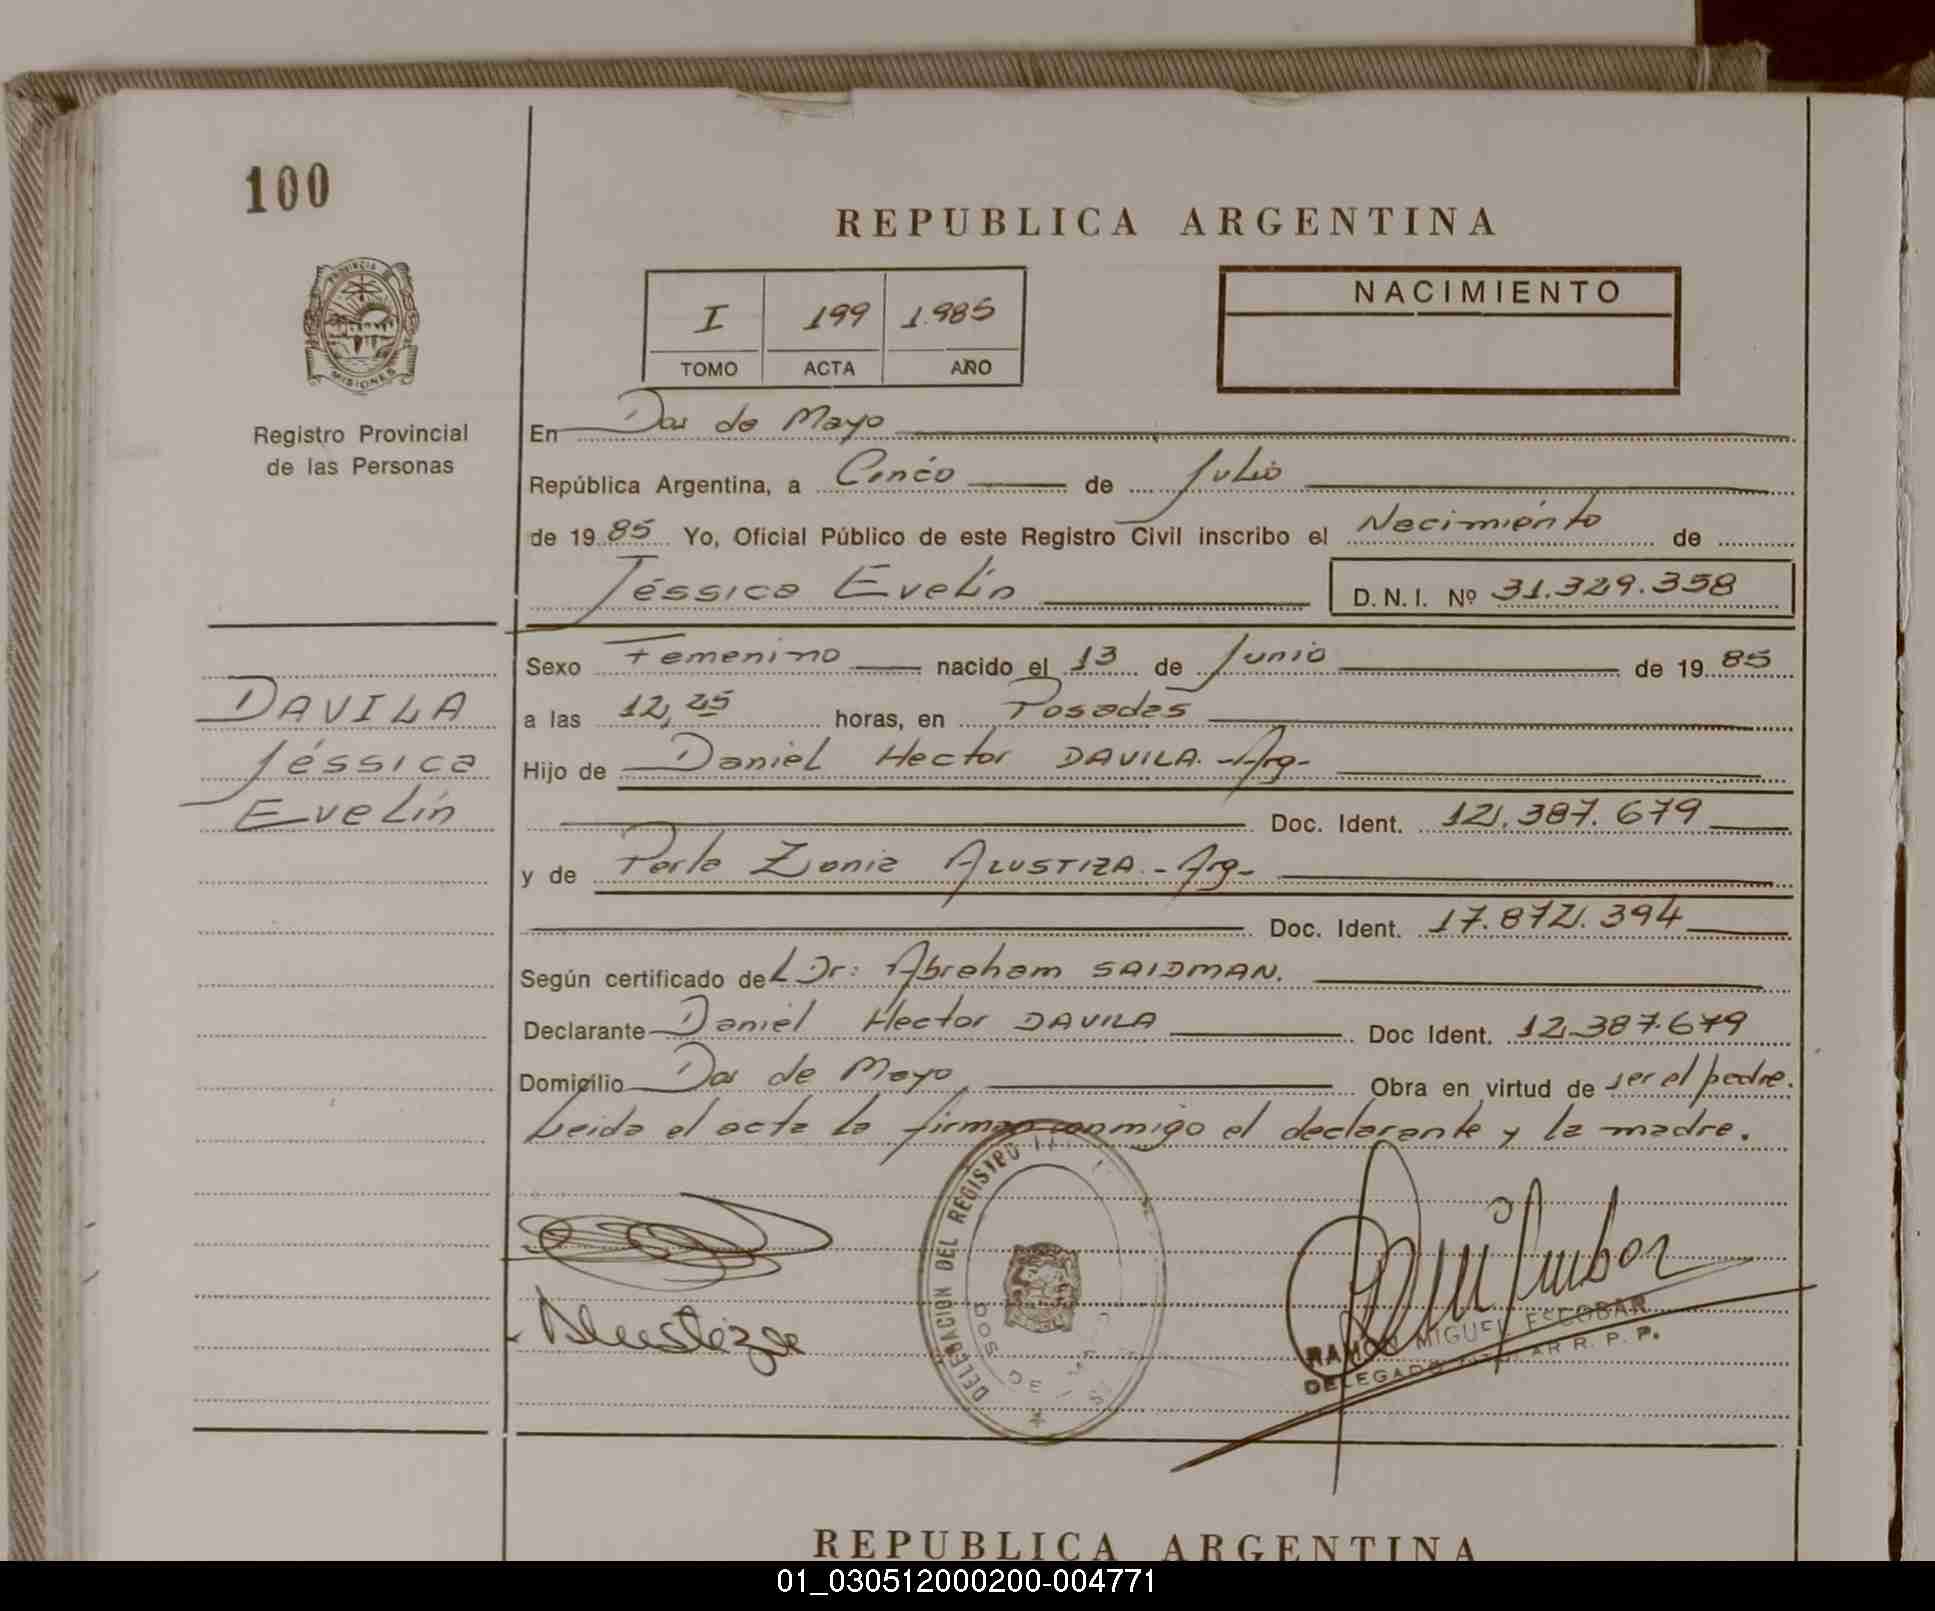 100
REPUBLICA ARGENTINA
PROVINCIA DE
MISIONES
Registro Provincial
de las Personas
I 199 1.985
TOMO ACTA AÑO
NACIMIENTO
En Dos de Mayo
República Argentina, a Cinco de Julio
de 1985 Yo, Oficial Público de este Registro Civil inscribo el Nacimiento de
Jéssica Evelín D.N.I. Nº 31.329.358
Sexo Femenino nacido el 13 de Junio de 1985
a las 12,45 horas, en Posadas
Hijo de Daniel Hector DAVILA.-Arg-
Doc. Ident. 12.387.679
y de Perla Zonia ALUSTIZA.-Arg-
Doc. Ident. 17.872.394
Según certificado del Dr: Abraham SAIDMAN.
Declarante Daniel Hector DAVILA Doc Ident. 12.387.679
Domicilio Dos de Mayo, Obra en virtud de ser el padre.
Leida el acta la firman conmigo el declarante y la madre.
DAVILA
Jéssica
Evelín
Alustiza
DELEGACION DEL REGISTRO
DOS DE
RAMON MIGUEL ESCOBAR
DELEGADO R. P. P.
REPUBLICA ARGENTINA
01_030512000200-004771